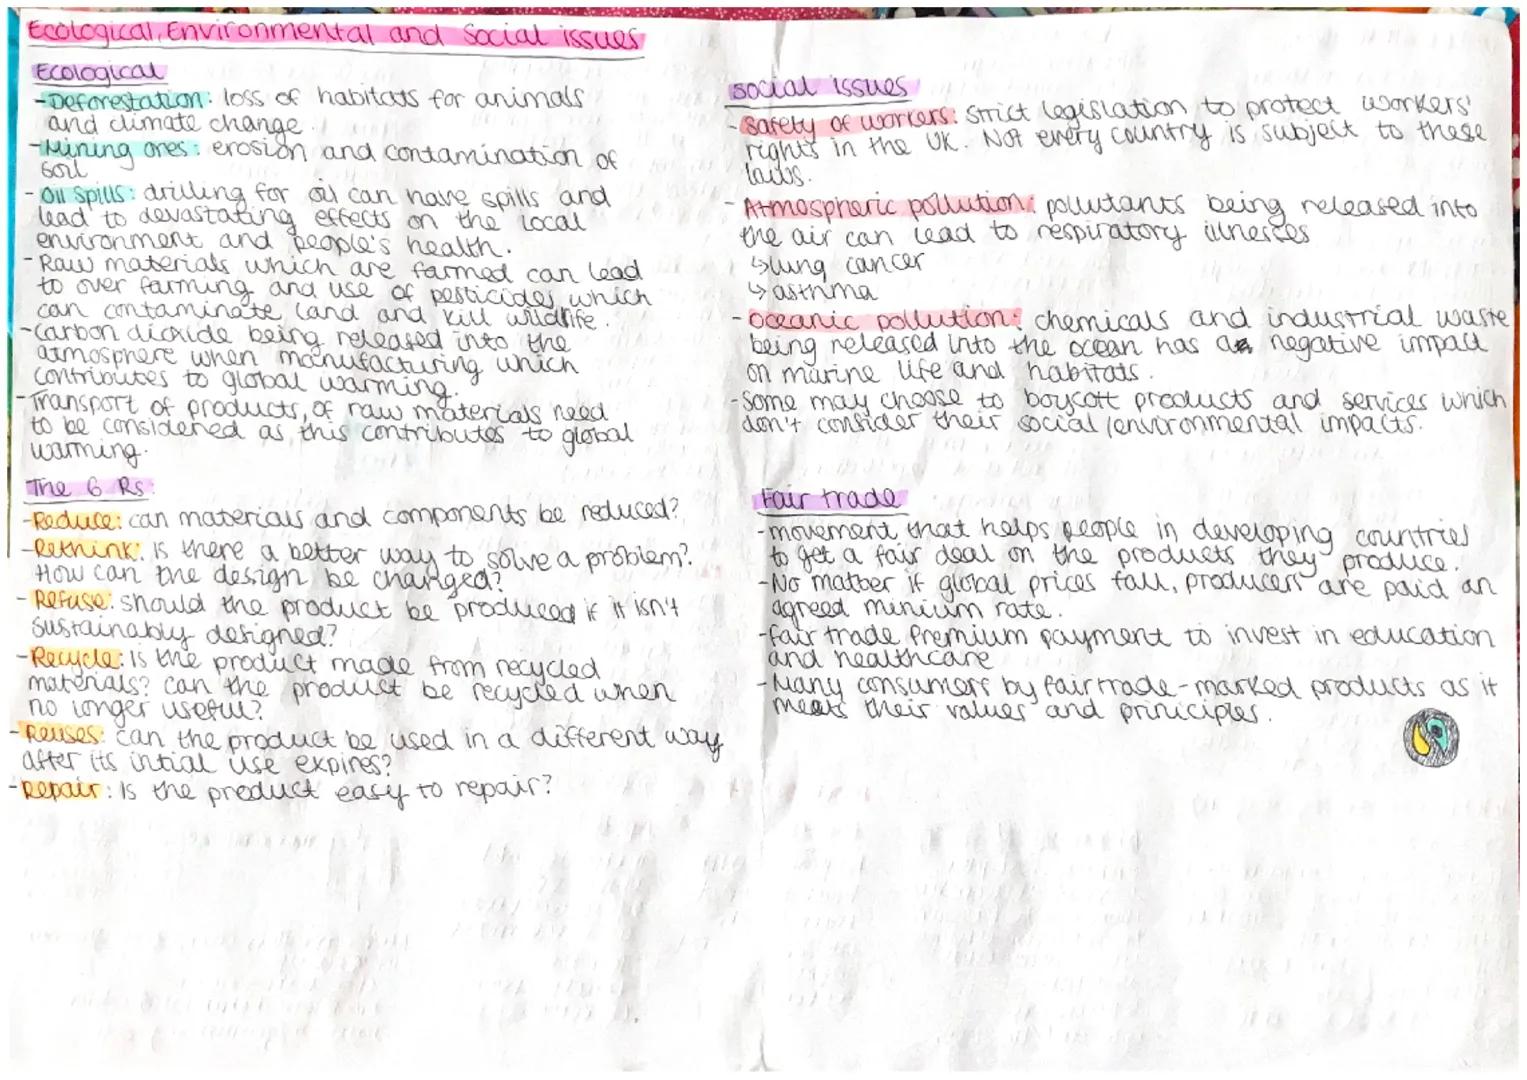 Ecological, Environmental and Social issues
Ecological
-Deforestation: loss of habitats for animals
and climate change.
-Mining ores: erosion and contamination of
soil
- Oil spills: drilling for oil can have spills and
lead to devastating effects on the local
environment and people's health.
- Raw materials which are farmed can lead
to over farming and use of pesticides which
can contaminate land and kill wildlife.
-Carbon dioxide being released into the
atmosphere when manufacturing which
contributes to global warming.
-Transport of products, of raw materials need
to be considered as this contributes to global
warming.
The 6 Rs:
-Reduce: can materials and components be reduced?
-Rethink: Is there a better way to solve a problem?
How can the design be changed?
- Refuse: should the product be produced if it isn't
sustainably designed?
-Recycle: Is the product made from recycled
materials? can the product be recycled when
no longer useful?
-Reuses: can the product be used in a different way
after its intial use expires?
-Repair: Is the product easy to repair?
social issues
- Safety of workers: strict legislation to protect workers'
rights in the UK. Not every country is subject to these
laws.
- Atmospheric pollution: pollutants being released into
the air can lead to respiratory illnesses
↳lung cancer
↳asthma
- Oceanic pollution: chemicals and industrial waste
being released into the ocean has a negative impact
on marine life and habitats.
-Some may choose to boycott products and services which
don't consider their social/environmental impacts.
Fair trade
-movement that helps people in developing countries
to get a fair deal on the products they produce.
-No matter if global prices fall, producers are paid an
agreed minium rate.
-fair trade Premium payment to invest in education
and healthcare
-Many consumers by fairtrade-marked products as it
meets their values and priniciples.